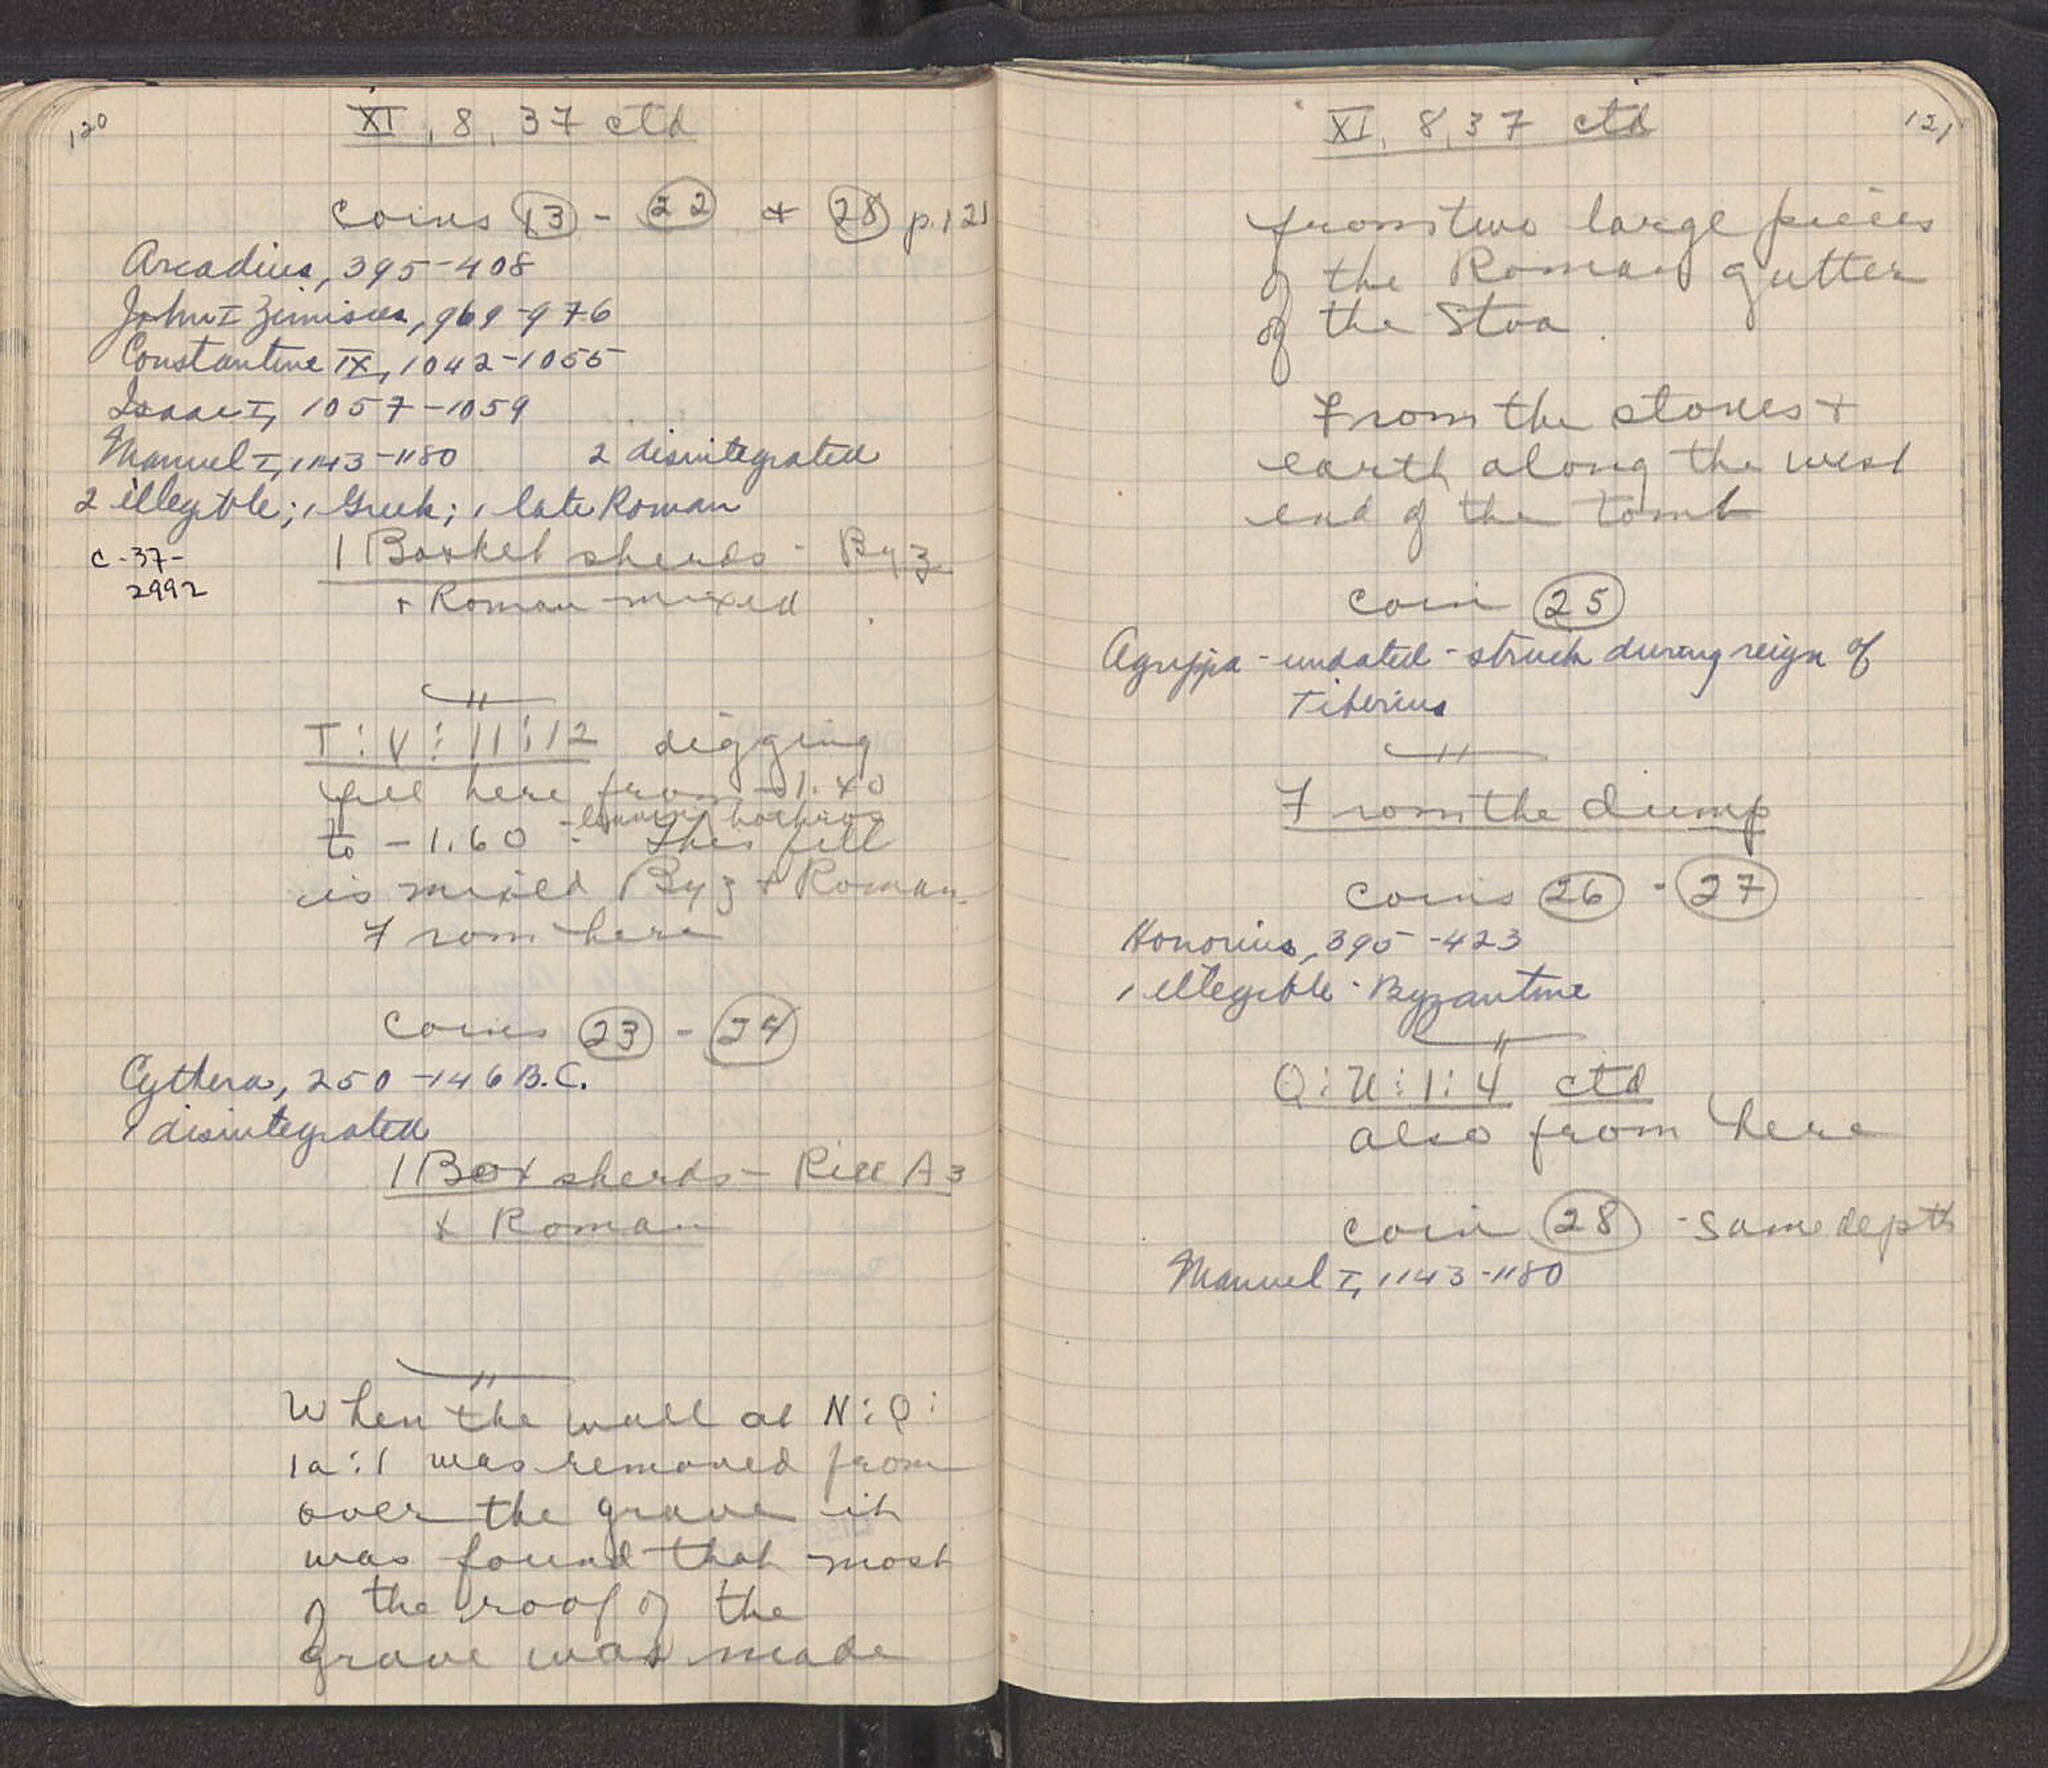 120
XI, 8, 37 ctd
coins 13 - 22 + 28 p. 121
Arcadius, 395-408
John I Zimisces, 969-976
Constantine IX, 1042-1055
Isaac I, 1057-1059
Manuel I, 1143-1180 2 disintegrated
2 illegible; 1 Greek; 1 late Roman
C-37-
2992
1 Basket sherds - Byz
+ Roman mixed
"
T:V:11:12 digging
fill here from -1.40
to -1.60 - This fill
is mixed Byz + Roman.
From here
coins 23 - 24
Cythera, 250-146 B.C.
1 disintegrated
1 Box sherds - Rill A3
+ Roman
"
When the wall at N:Q:
1a:1 was removed from
over the grave it
was found that most
of the roof of the
grave was made
XI, 8, 37 ctd
121
from two large pieces
of the Roman gutter
of the Stoa.
From the stones +
earth along the west
end of the tomb
coin 25
Agrippa - undated - struck during reign of
Tiberius
"
From the dump
coins 26 - 27
Honorius, 395-423
1 illegible - Byzantine
"
Q:U:1:4 ctd
also from here
coin 28 - same depth
Manuel I, 1143-1180